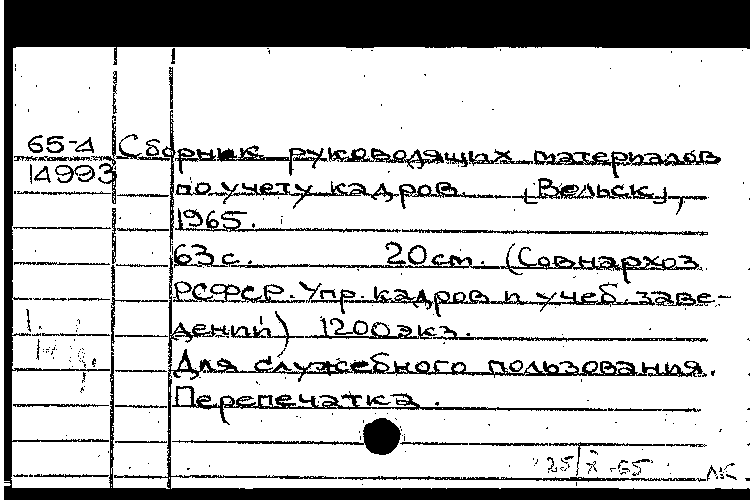 65-4 Сборник руководящих материалов
14993 по учету кадров. [Вельск],
1965.
63 с. 20 см. (Совнархоз
РСФСР. Упр. кадров и учеб. заве-
дений) 1200 экз.
Для служебного пользования.
Перепечатка.
25/X-65 ЛК